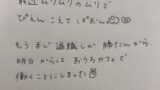 最近ムリムリのムリで
ぴえん こえて ぱおん
もう まじ 退職しか 勝たんから
明日 からは おうちカフェで
働くことにしました